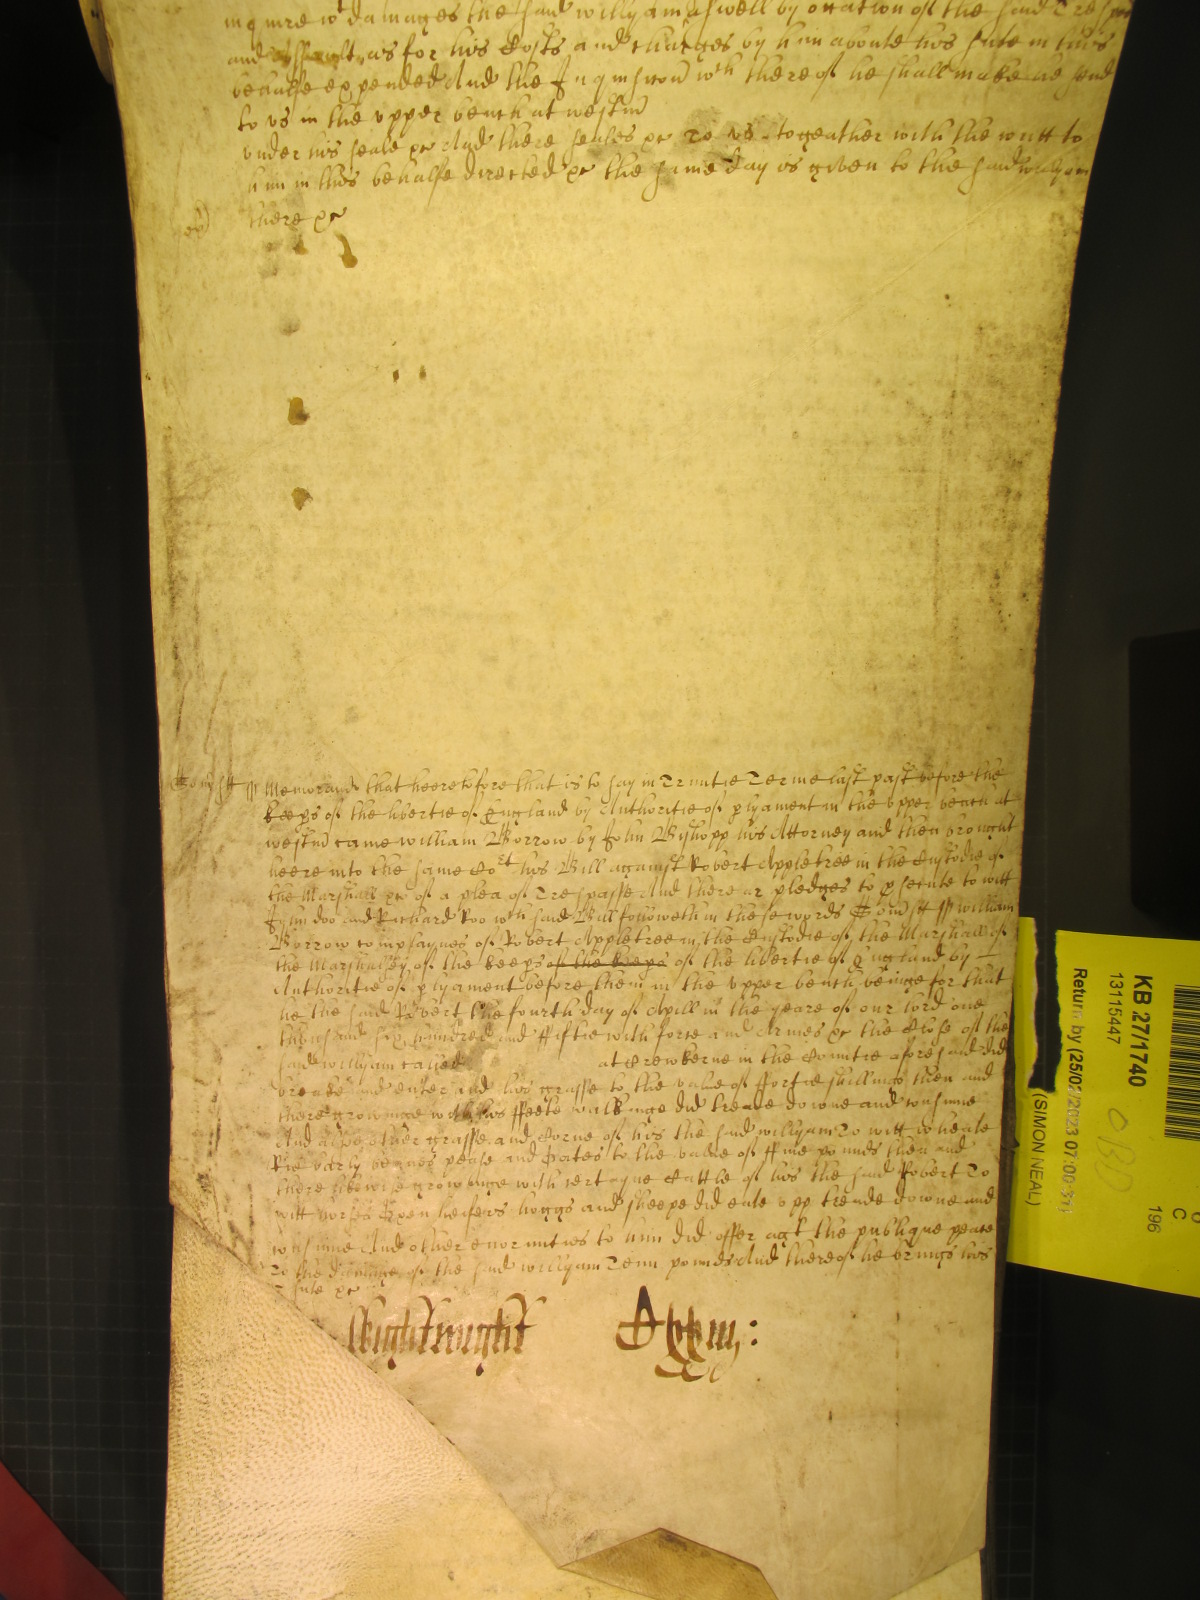 inquire wt damages the said willyam aswell by occation of the said Tresp
and assault as for his Costs and charges by him aboute his sute in this
behalfe expended And the Inquisicon wch thereof he shall make he send
to us in the upper bench at westmr
under his seale &c And there seales &c to us togeather with the writt to
him in this behalfe directed &c the same day is given to the said willyam
there &c
Memorand that heeretofore that is to say in Trinitie Terme last past before the
keeps of the libertie of England by Authoritie of pliament in the upper bench at
westmr came william Borrow by John Bishopp his Attorney and then brought
heere into the same Cort his Bill against Robert Appletree in the Custodie of
the Marshall &c of a plea of Trespasse And there ar pledges to psecute to witt
John doo and Richard Roo wch said Bill followeth in these words Somst ss william
Borrow complaynes of Robert Appletree in the Custodie of the Marshall of
the Marshalsey of the keeps of the keeps of the libertie of England by
Authoritie of pliament before them in the upper bench beinge for that
he the said Robert the fourth day of Aprill in the yeare of our lord one
thousand six hundred and fiftie with force and Armes &c the Close of the
said willyam called at Crewkerne in the Countie aforesaid did
breake and enter and his grasse to the value of fortie shillings then and
there growinge with his feete walkinge did treade downe and consume
And also other grasse and Corne of his the said willyam to witt wheate
Rie barly beanes pease and oates to the value of five pounds then and
there likewise growinge with certayne Cattle of his the said Robert to
witt horses Oxen heifers hoggs and sheepe did eate upp treade downe and
consume And other enormities to him did offer agt the publique peace
To the damage of the said willyam Tenn pounds And thereof he brings his
sute &c
KB 27/1740
13115447
Return by (25/02/2023 07:00:51)
(SIMON NEAL)
C
196